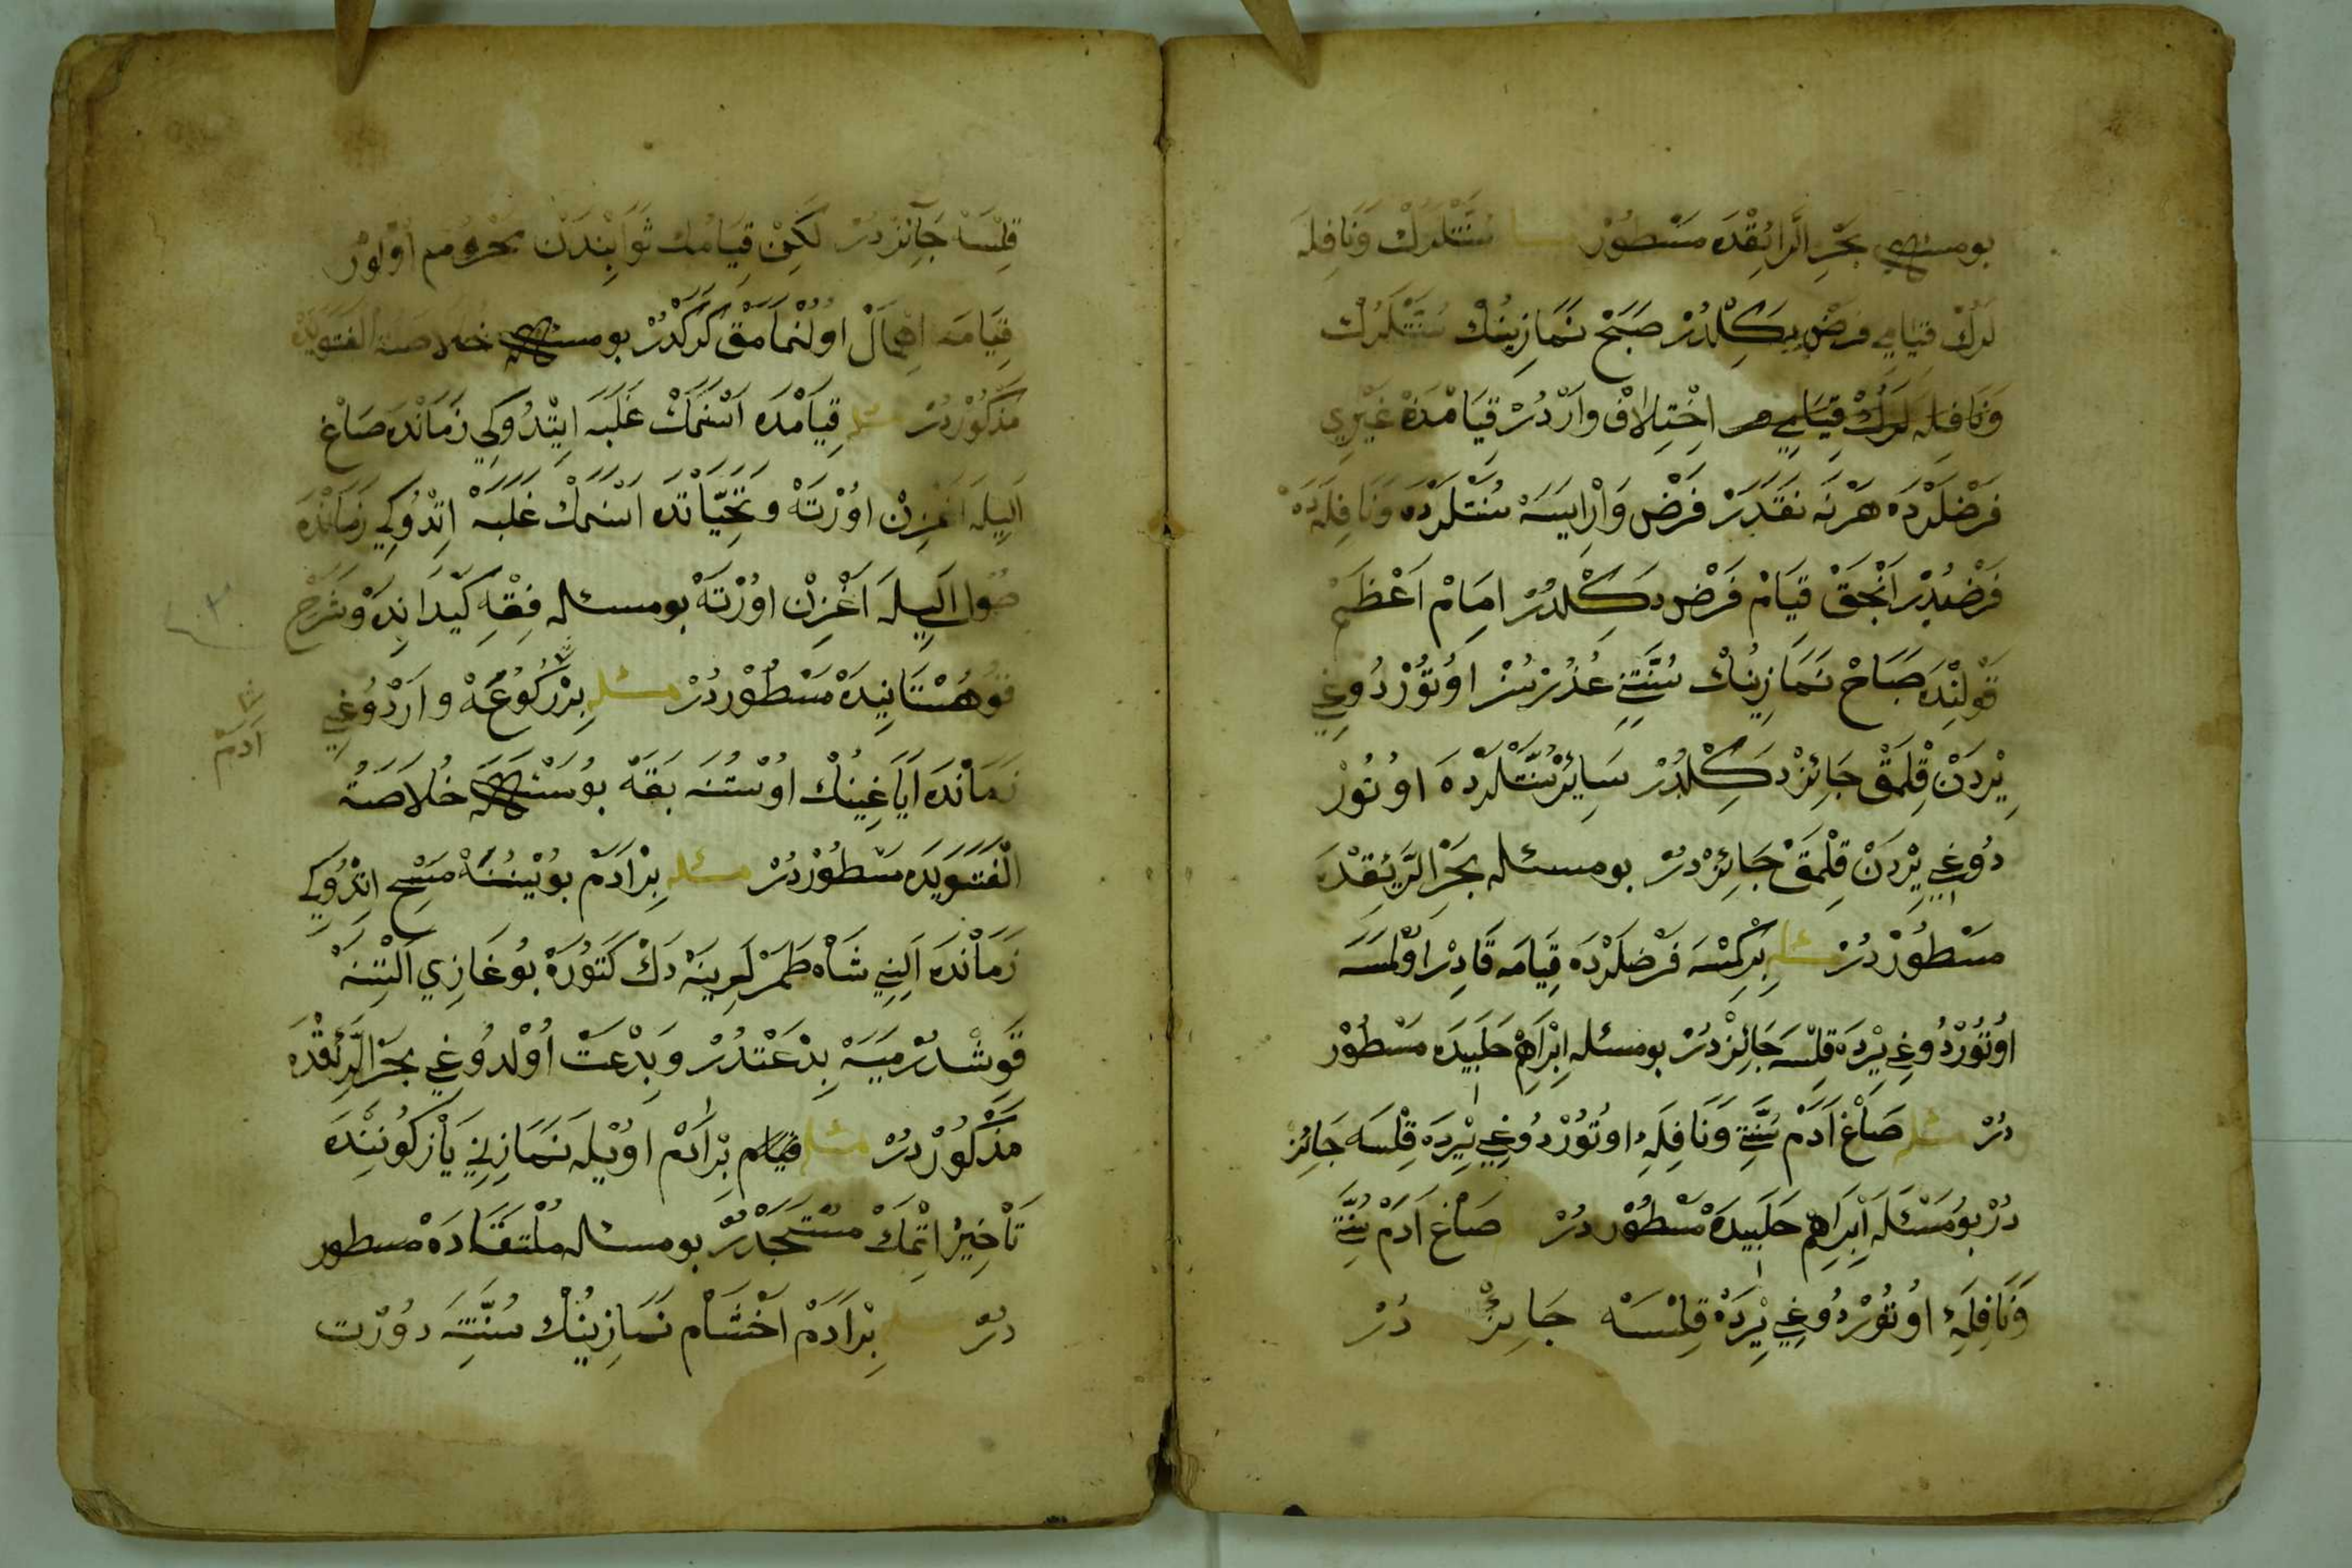 بومسئله بَحْرِ الرَّائِقْدَه مَسْطُورْ مسئله سُنَّتْلَرُكْ وَنَافِلَه
لَرُكْ قِيَامِي فرضْ دِكِلْدُرْ صَبَحْ نَمَازِينُكْ سُنَّتْلَرُكْ
وَنَافِلَه لَرُكْ قِيَامِي اِخْتِلَافْ وَارْدُرْ قِيَامْدَنْ غَيْرِي
فَرْضْلَرْدَه هَرْنَه نَقَدَرْ فَرْضْ وَارْاِيسَه سُنَّتْلَرْدَه وَنَافِلَه دَه
فَرْضْدُرْ اَنْجَقْ قِيَامْ فَرْضْ دَكِلْدُرْ اِمَامْ اَعْظَمْ
قَوْلِنْدَه صَبَاحْ نَمَازِينُكْ سُنَّتِنِي عُذُرْسُزْ اوُتُوْرْدُوغِي
يِرْدَنْ قِلْمَقْ جَائِزْ دَكِلْدُرْ سَائِرْ سُنَّتْلَرْدَه اوُتُورْ
دُوغِي يِرْدَنْ قِلْمَقْ جَائِزْدُرْ بومسئله بَحْرِ الرَّيِقْدَه
مَسْطُوْرْدُرْ مسئله بِرْكِمْسَه فَرْضْلَرْدَه قِيَامَه قَادِرْ اَوْلْمَسَه
اوُتُوُرْدُوغِي يِرْدَه قِلْسَه جَائِزْدُرْ بومسئله اِبْرَاهِمْ حَلَبِيدَه مَسْطُوْر
دُرْ مسئله صَاغْ اَدَمْ سُنَّتِي وَنَافِلَهِ اوُتُوُرْدُوغِي يِرْدَه قِلْسَه جَائِزْ
دُرْ بوُمَسْئَلَه اِبْرَاهِمْ حَلَبِيدَه مَسْطُوْر دُرْ صَاغْ اَدَمْ سُنَّتِ
وَنَافِلَهِ اوُتُوُرْدُوغِي يِرْدَه قِلْسَه جَائِزْ دُرْ
قِلْسَه جَائِزْدُرْ لَكِنْ قِيَامُكْ ثَوَابِنْدَنْ مَحْرُومْ اوُلُوُرْ
قِيَامَه اِهْمَالْ اوُلُنْمَامَقْ كَرَكْدُرْ بومسئله خُلَاصَةُ الفَتَوِيدَه
مَذْكُوْرْدُرْ مسئله قِيَامْدَه اَسْنَمَكْ غَلَبَه اِيتْدُوكِي زَمَانْدَه صَاغْ
اَلِيلَه اَغْزِنْ اوُرْتَه وَتَحِيَّاتْدَه اَسْنَمَكْ غَلَبَه اِتْدُوكِي زَمَانْدَه
صُول اَلِيلَه اَغْزِنْ اوُرْتَه بومسئله فِقْهِ كَيْدَانِدَه وَشَرْحِ
قُوهُسْتَانِيدَه مَسْطُوْردُرْ مسئله بِرْ رُكُوُعَه وارْدُوغِي
زَمَانْدَه اَيَاغِينُكْ اوُسْتُنَه بَقَه بوُمَسْئَلَه خُلَاصَةُ
الْفَتَوِيَدَه مَسْطُوْرْدُرْ مسئله بِرْ اَدَمْ بوُيْنِنَه مَسْحِ اِتْدُوكِي
زَمَانْدَه اَلِنِي شَاه طَمَرْلَرِينَه دَكْ كَتُوُرَه بوُغَازِي اَلْتِنَه
قَوِشْدُرْمَيَه بِدْعَتْدُرْ وَبِدْعَتْ اوُلْدُوغِي بَحْرِ الرَّئِقْدَه
مَذْكُوْرْدُرْ مسئله بِرْاَدَمْ اوُيْلَه نَمَازِنِي يَازْ كُونِنْدَه
تَأْخِيرْ اِتْمَكْ مُسْتَحَبْدُرْ بومسئله مُلْتَقَادَه مسطور
دُرْ مسئله بِرْاَدَمْ اَخْشَامْ نَمَازِينُكْ سُنَّتِنِي دوُرْت
اَدَمْ